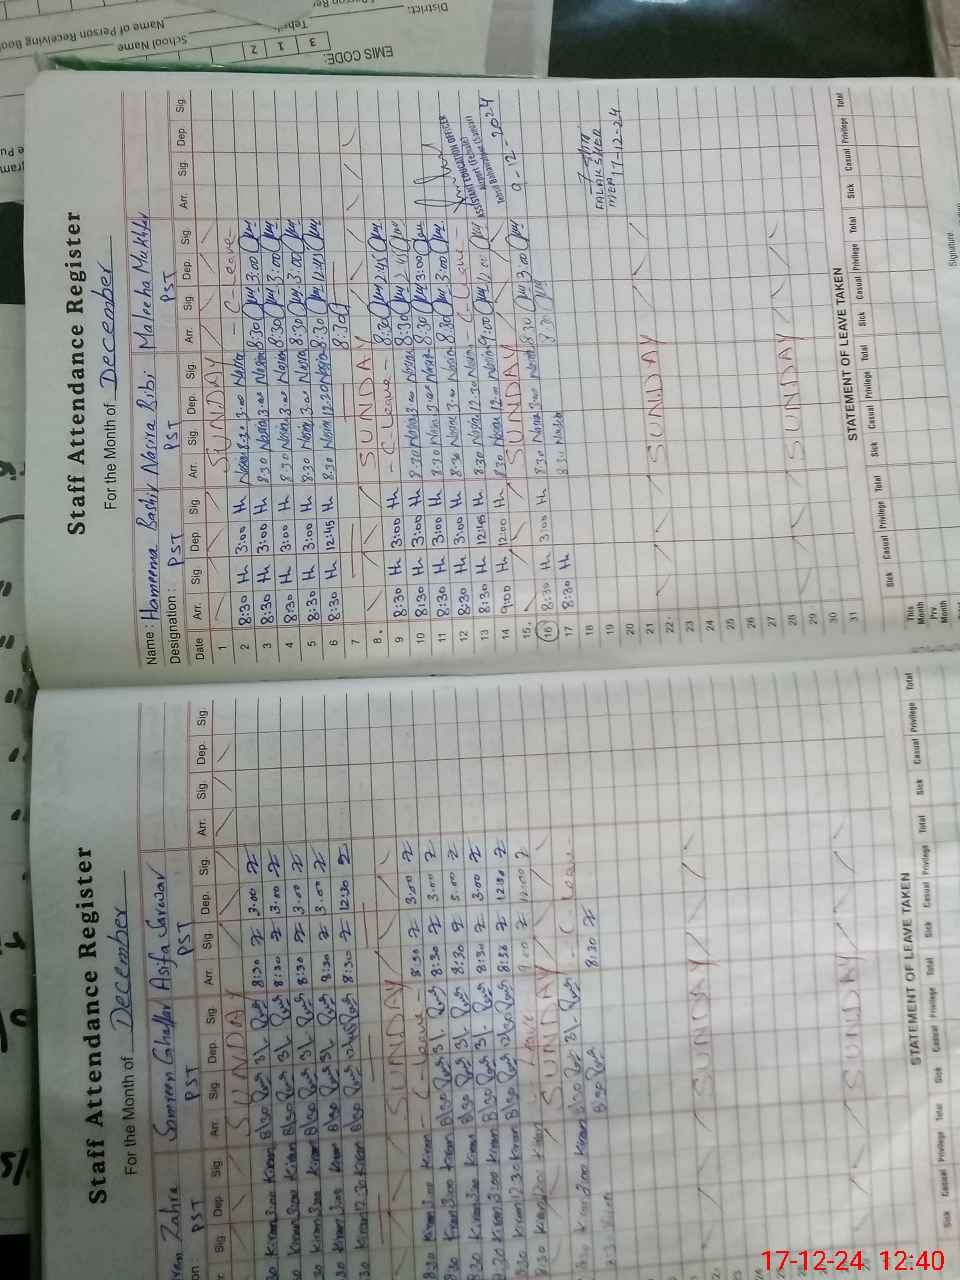 EMIS CODE: 3 1 2
District:
Tehsil
School Name
Name of Person Receiving Boo
Staff Attendance Register
For the Month of December
Name : Hameema Bashir Nasira Bibi Maleeha Mukhtar
Designation : PST PST PST
Date Arr. Sig Dep. Sig Arr. Sig. Dep. Sig. Arr. Sig Dep. Sig. Arr. Sig. Dep. Sig.
1 SUNDAY - C-Leave-
2 8:30 Hr 3:00 Hr Nasra 8:30 3:00 Nasra 8:30 3:00
3 8:30 Hr 3:00 Hr 8:30 Nasra 3:00 Nasra 8:30 3:00
4 8:30 Hr 3:00 Hr 8:30 Nasra 3:00 Nasra 8:30 3:00
5 8:30 Hr 3:00 Hr 8:30 Nasra 3:00 Nasra 8:30 12:45
6 8:30 Hr 12:45 Hr 8:30 Nasra 12:30 Nasra 8:30
7
8. SUNDAY
9 8:30 Hr 3:00 Hr - C-Leave - 8:30 2:45
10 8:30 Hr 3:00 Hr 8:30 Nasra 3:00 Nasra 8:30 2:45
11 8:30 Hr 3:00 Hr 8:30 Nasra 3:00 Nasra 8:30 3:00
12 8:30 Hr 3:00 Hr 8:30 Nasra 3:00 Nasra 8:30 3:00
13 8:30 Hr 12:45 Hr 8:30 Nasra 12:30 Nasra - C-Leave -
14 9:00 Hr 12:00 Hr 8:30 Nasra 12:00 Nasra 9:00 12:00
15. SUNDAY
16 8:30 Hr 3:00 Hr 8:30 Nasra 3:00 Nasra 8:30 3:00
17 8:30 Hr 8:30 Nasra 8:30
18
19
20
21 SUNDAY
22
23
24
25
26
27
28 SUNDAY
29
30
31
ASSISTANT EDUCATION OFFICER
9-12-2024
FALAK SHER
MEA 17-12-24
STATEMENT OF LEAVE TAKEN
Sick Casual Privilege Total Sick Casual Privilege Total Sick Casual Privilege Total Sick Casual Privilege Total
This Month
Prv Month
Signature
Staff Attendance Register
For the Month of December
Zahra Samreen Ghaffar Asifa Sarwar
PST PST PST
Sig. Dep. Sig. Arr. Sig. Dep. Sig. Arr. Sig. Dep. Sig. Arr. Sig. Dep. Sig.
SUNDAY
Kiran 3:00 Kiran 8/30 3/- 8:30 3:00
Kiran 3:00 Kiran 8/30 3/- 8:30 3:00
Kiran 3:00 Kiran 8/30 3/- 8:30 3:00
Kiran 3:00 Kiran 8/30 3/- 8:30 3:00
Kiran 12:30 Kiran 8/30 12/45 8:30 12:30
SUNDAY
8:30 Kiran 3:00 Kiran - C-Leave - 8:30 3:00
8:30 Kiran 3:00 Kiran 8/30 3/- 8:30 3:00
8:30 Kiran 3:00 Kiran 8/30 3/- 8:30 3:00
8:30 Kiran 3:00 Kiran 8/30 3/- 8:30 3:00
8:30 Kiran 12:30 Kiran 8/30 12/30 8:30 12:30
8:30 Kiran 12:00 Kiran - Leave - 9:00 12:00
SUNDAY
8:30 Kiran 3:00 Kiran 8/30 3/- - C Leave -
8:30 Kiran 8/30 8:30
SUNDAY
SUNDAY
STATEMENT OF LEAVE TAKEN
Sick Casual Privilege Total Sick Casual Privilege Total Sick Casual Privilege Total Sick Casual Privilege Total
17-12-24 12:40